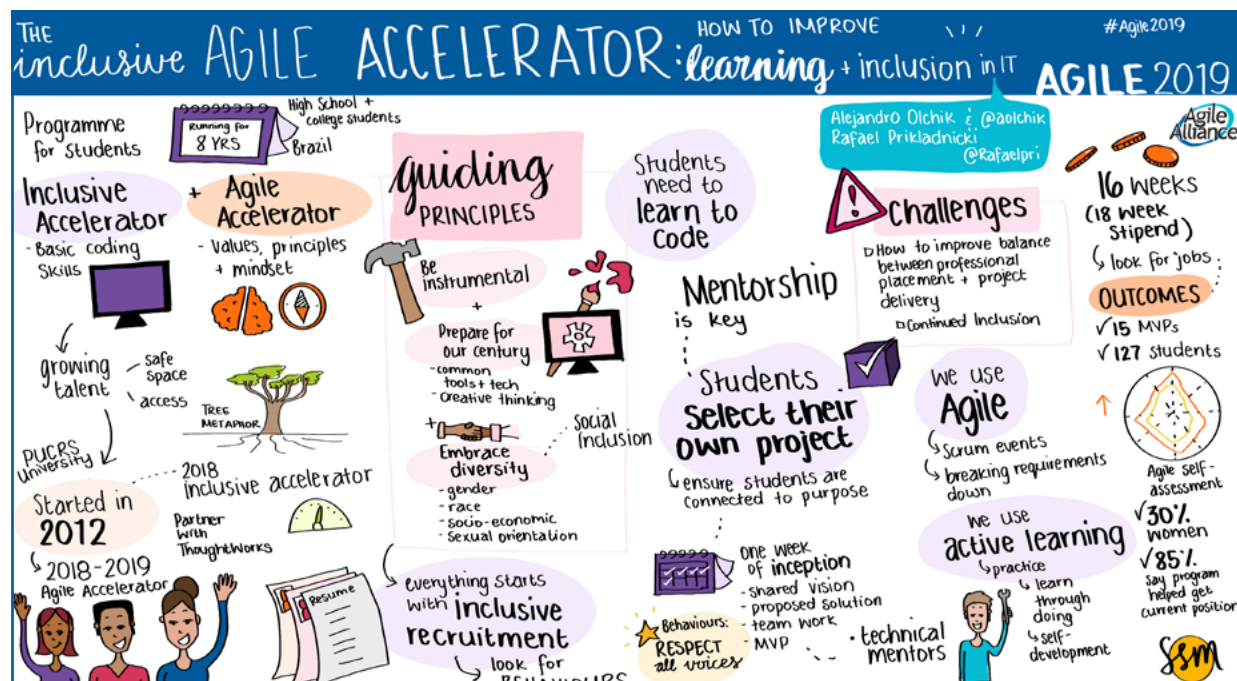 THE
inclusive AGILE ACCELERATOR:
HOW TO IMPROVE
learning + inclusion in IT
#Agile2019
AGILE 2019
Alejandro Olchik & @aolchik
Rafael Prikladnicki
@Rafaelpri
Agile
Alliance
Programme
for students
Running for
8 YRS
High School +
college students
Brazil
Inclusive
Accelerator
- Basic coding
skills
+ Agile
Accelerator
- Values, principles
+ mindset
growing
talent
safe
space
access
TREE
METAPHOR
PUCRS
University
Started in
2012
2018
inclusive accelerator
Partner
with
ThoughtWorks
2018-2019
Agile Accelerator
Resume
guiding
PRINCIPLES
Be
instrumental
+
Prepare for
our century
- common
tools + tech
- creative thinking
+
Embrace
diversity
- gender
- race
- socio-economic
- sexual orientation
Social
Inclusion
everything starts
with inclusive
recruitment
look for
BEHAVIOURS
Students
need to
learn to
code
Mentorship
is key
Students
Select their
own project
ensure students are
connected to purpose
one week
of inception
- shared vision
- proposed solution
- team work
- MVP
Behaviours:
RESPECT
all voices
• technical
mentors
Challenges
How to improve balance
between professional
placement + project
delivery
Continued Inclusion
We use
Agile
Scrum events
breaking requirements
down
we use
active learning
practice
learn
through
doing
self-
development
16 weeks
(18 week
stipend)
look for jobs
OUTCOMES
✓ 15 MVPs
✓ 127 students
Agile self-
assessment
✓ 30%
women
✓ 85%
say program
helped get
current position
ssm